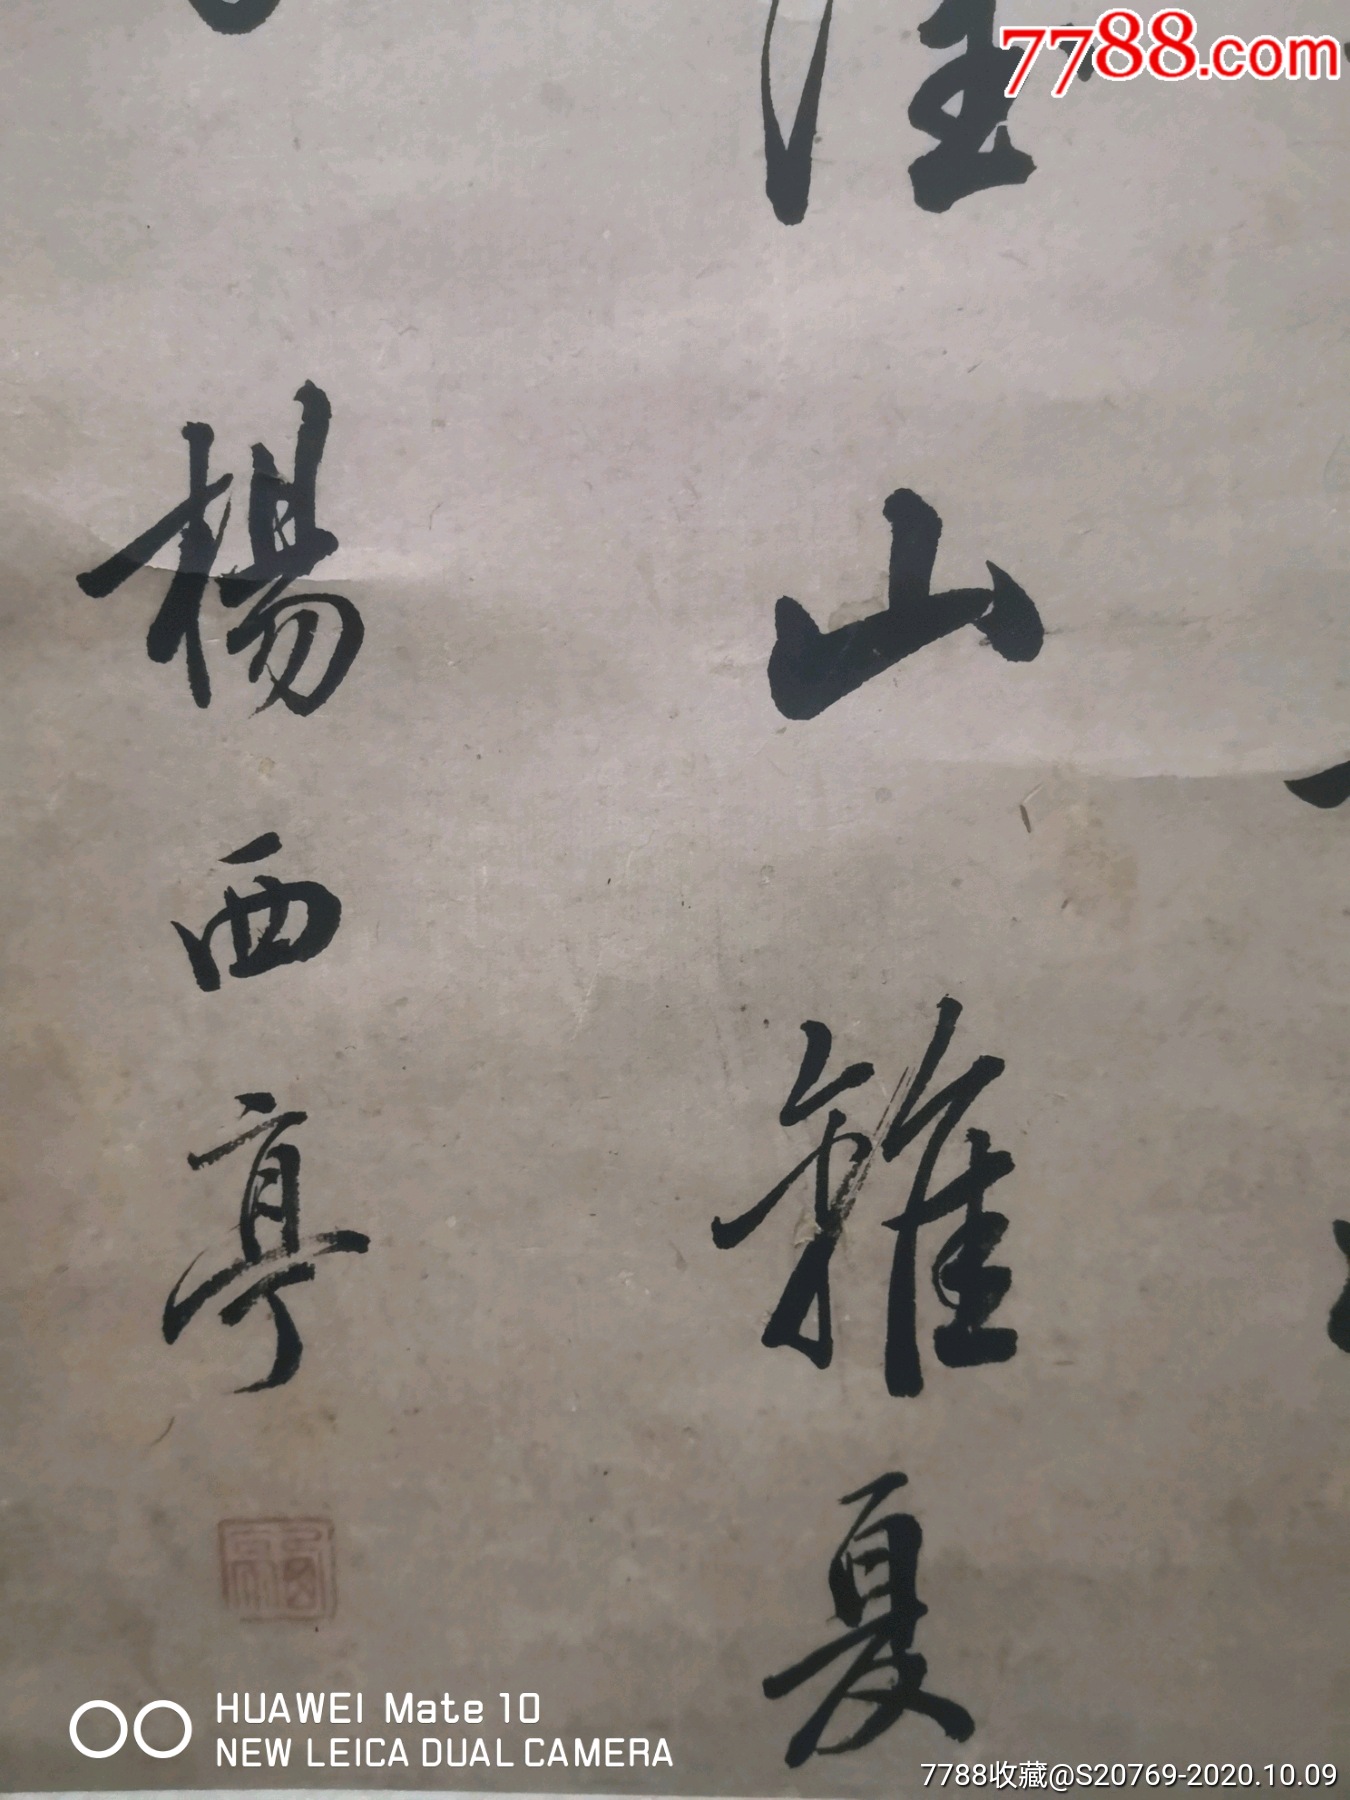 7788.com
山雖夏
楊西亭
HUAWEI Mate 10
NEW LEICA DUAL CAMERA
7788收藏@S20769-2020.10.09